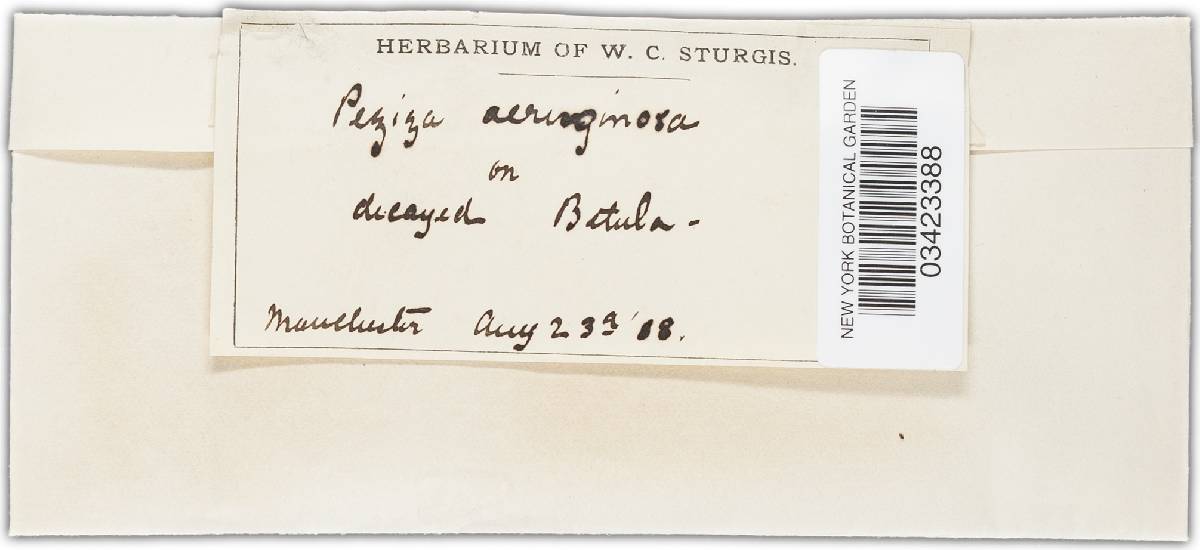 HERBARIUM OF W. C. STURGIS.
Peziza aeruginosa
on
decayed Betula -
Manchester Aug 23d '88.
NEW YORK BOTANICAL GARDEN
03423388